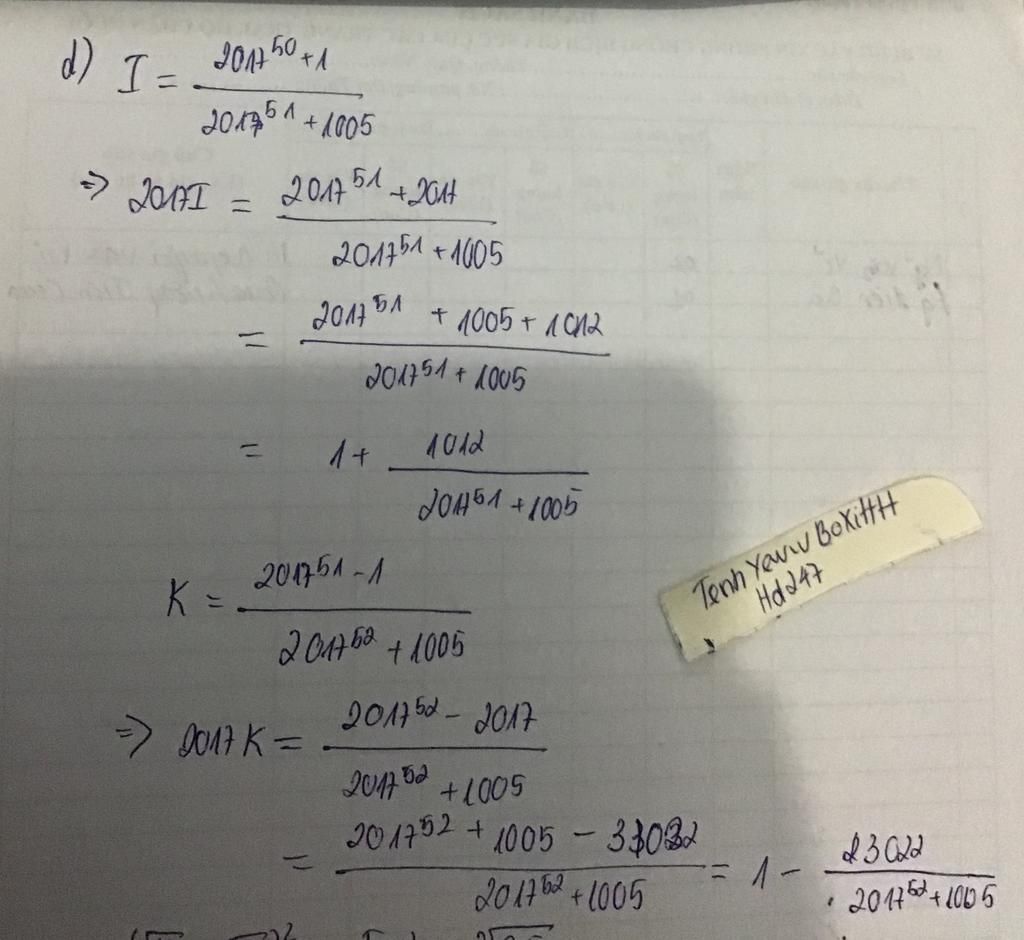 d) I = (2017^50 + 1) / (2017^51 + 1005)
=> 2017I = (2017^51 + 2017) / (2017^51 + 1005)
= (2017^51 + 1005 + 1012) / (2017^51 + 1005)
= 1 + 1012 / (2017^51 + 1005)
Tenh Yeuw BoXiHH
Hd247
K = (2017^51 - 1) / (2017^52 + 1005)
=> 2017K = (2017^52 - 2017) / (2017^52 + 1005)
= (2017^52 + 1005 - 3022) / (2017^52 + 1005) = 1 - 3022 / (2017^52 + 1005)